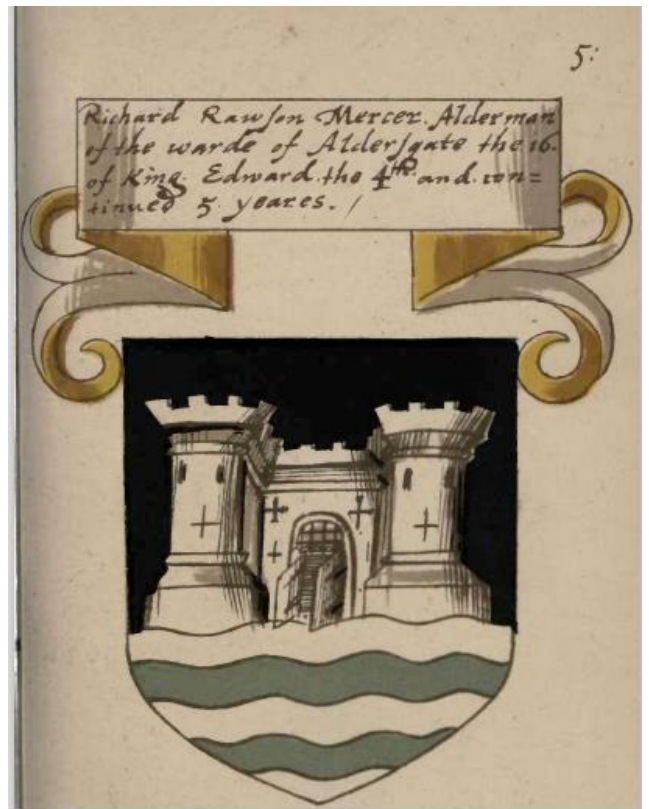 5:
Richard Rawson Mercer. Alderman
of the warde of Aldersgate the 16.
of King Edward the 4th and con=
tinued 5 yeares. /